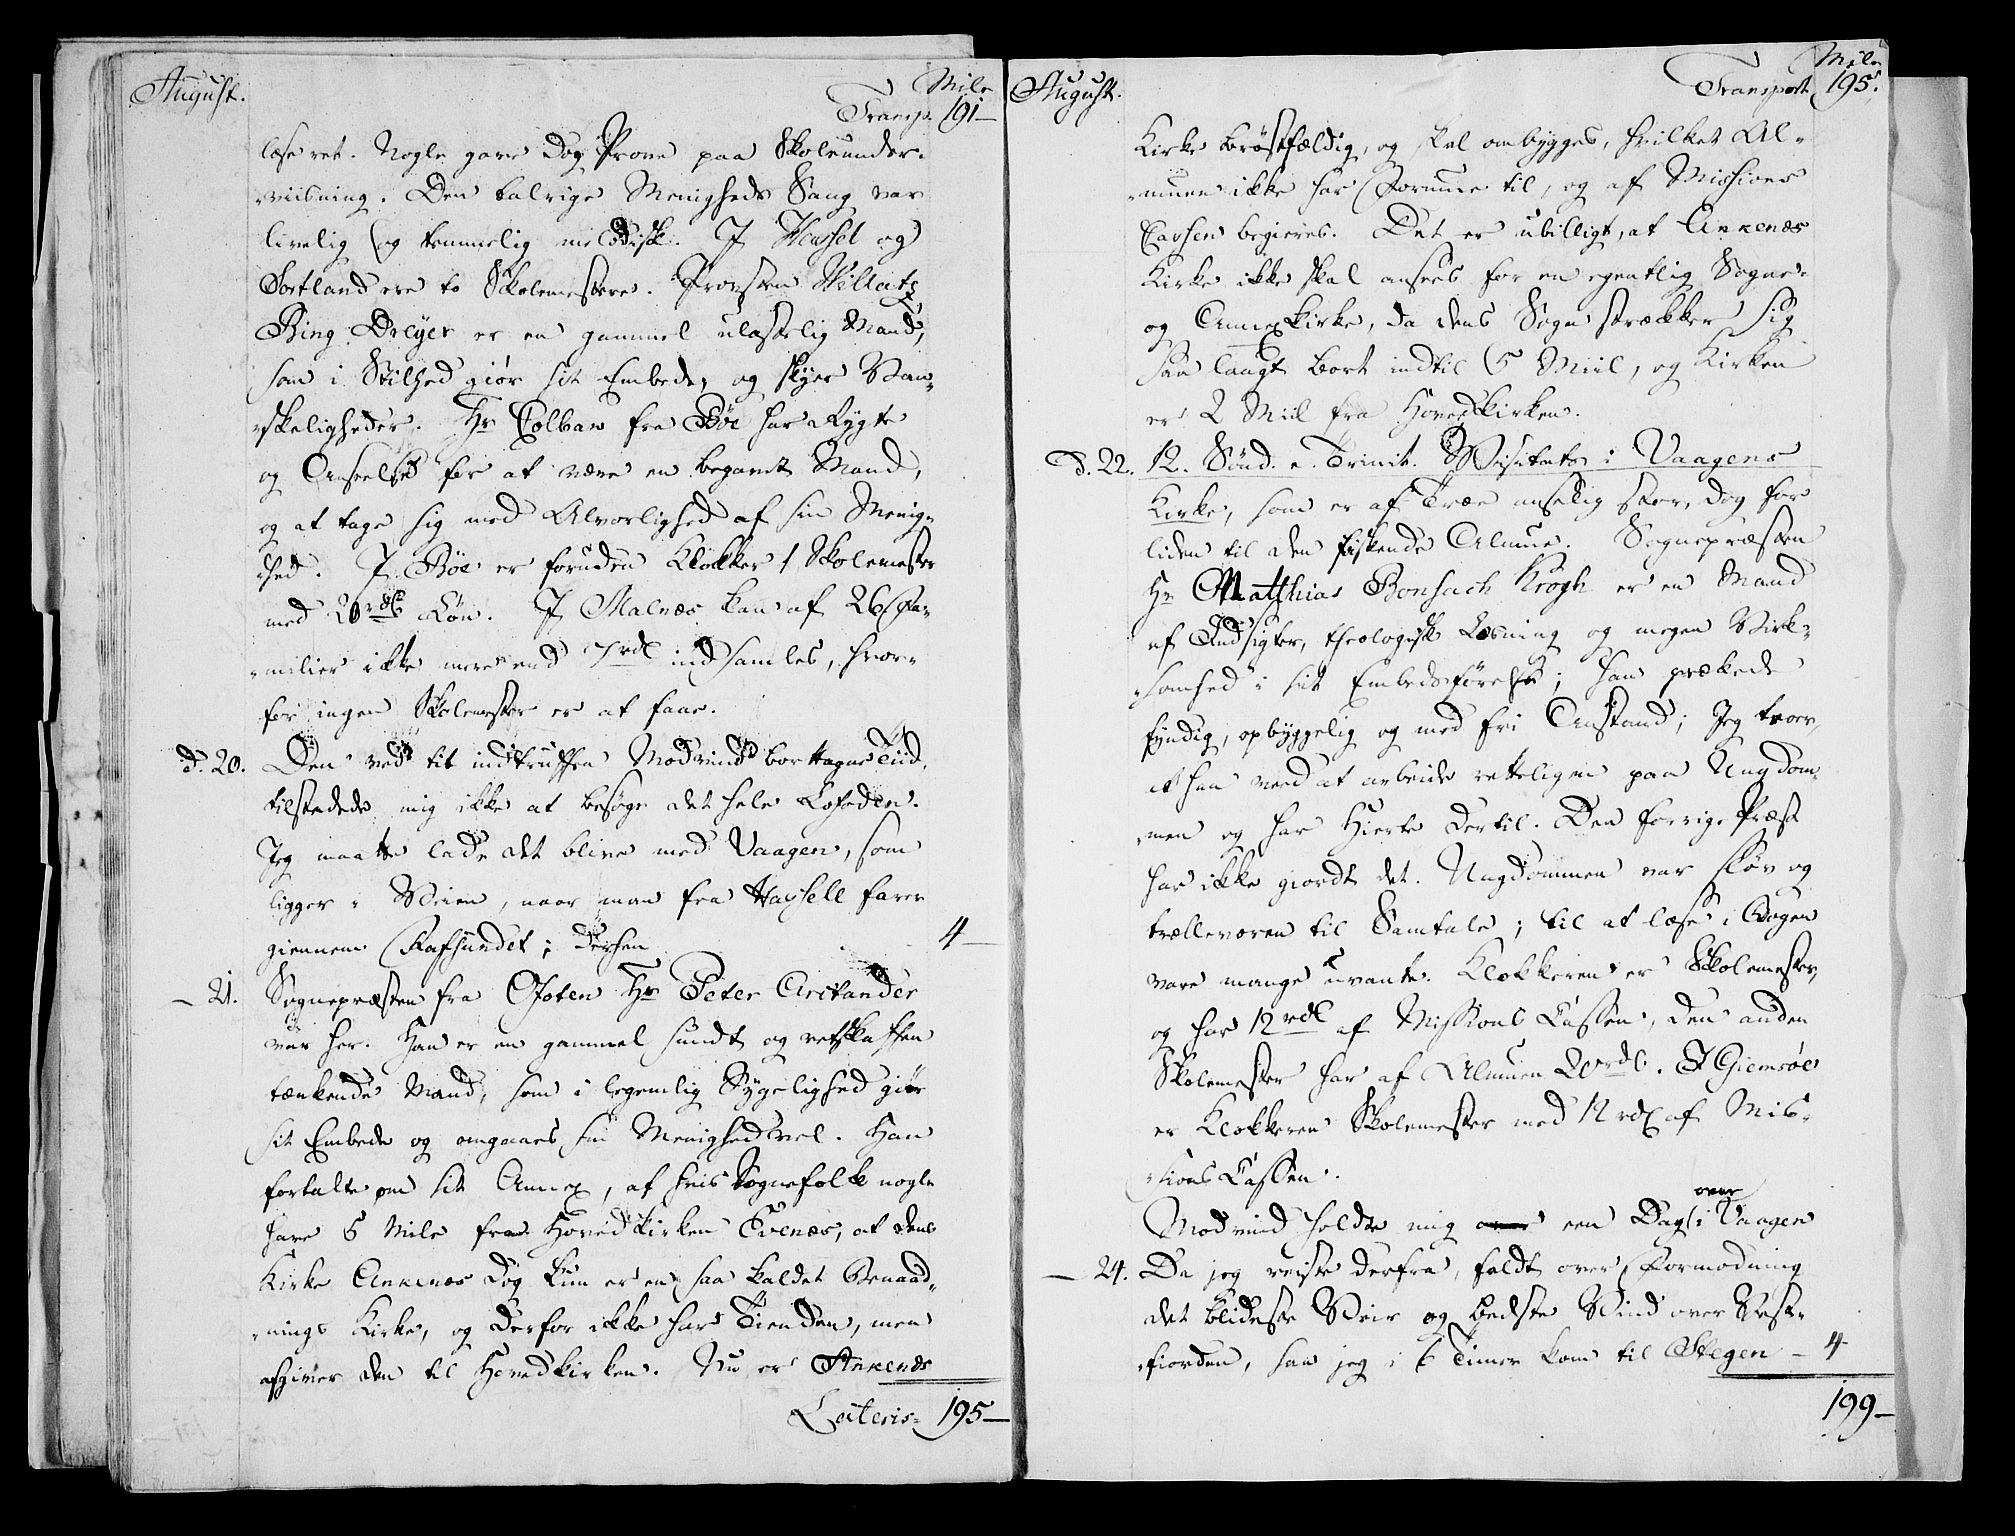 August.
Mile
Transp. 191 —
læse ret. Nogle gave dog Prøve paa Skoleunder-
viisning. Den talrige Menigheds Sang var
livelig og temmelig melodisk. I Hassel og
Sortland ere to Skolemestere. Provsten Willatz
Bing Dreyer er en gammel ulastelig Mand,
som i Stilhed giør sit Embede, og skyer Van-
skeligheder. Hr Colban fra Bøe har Rygte
og Anseelse for at være en begavet Mand,
og at tage sig med Alvorlighed af sin Menig-
hed. I Bøe er foruden Klokker 1 Skolemester
med 20 rdl Løn. I Malnæs kan af 26 Fa-
milier ikke mere end 7 rdl indsamles, hvor-
for ingen Skolemester er at faae.
d. 20. Den ved tit indtruffen Modvind borttagne Tiid,
tilstedede mig ikke at besøge det hele Lofoden.
Jeg maatte lade det blive med Vaagen, som
ligger i Veien, naar man fra Hassell farer
giennem Rafsundet; derhen 4 —
— 21. Sognepræsten fra Ofoten Hr Peter Aristander
var her. Han er en gammel sundt og retskaffen
tænkende Mand, som i legemlig Sygelighed giør
sit Embede og omgaaes sin Menighed vel. Han
fortalte om sit Annex, af hvis Sognefolk nogle
have 5 Mile fra Hovedkirken Evenæs, at dens
Kirke Ankenæs dog kun er en saa kaldet Benaad-
nings Kirke, og derfor ikke har Tienden, men
afgiver den til Hovedkirken. Nu er Ankenæs
Lateris 195 —
August.
Mile
Transport 195.
Kirke brøstfældig, og skal ombygges, hvilket Al-
muen ikke har Formue til, og af Missions
Cassen begieres. Det er ubilligt, at Ankenæs
Kirke ikke skal ansees for en egentlig Sogne-
og Annexkirke, da dens Sogn strækker sig
saa langt bort indtil 5 Miil, og Kirken
er 2 Miil fra Hovedkirken.
d. 22. 12. Sønd. e. Trinit. Visitats i Vaagens
Kirke, som er af Træe anselig stor, dog for
liden til den fiskende Almue. Sognepræsten
Hr Matthias Bonsach Krogh er en Mand
af Indsigter, theologisk Læsning og megen Virk-
somhed i sit Embedsførelse; han prækede
fyndig, opbyggelig og med fri Anstand; Jeg troer,
at han veed at arbeide retteligen paa Ungdom-
men og har Hierte dertil. Den forrige Præst
har ikke giordt det. Ungdommen var sløv og
trællevoren til Samtale; til at læse i Bogen
vare mange uvante. Klokkeren er Skolemester,
og har 12 rdl af Missions Cassen, den anden
Skolemester har af Almuen 20 rdl. I Giemsøe
er Klokkeren Skolemester med 12 rdl af Mis-
sions Cassen.
Modvind holdte mig een Dag over i Vaagen
— 24. Da jeg reiste derfra, faldt over Formodning
det blideste Veir og bedste Vind over Vest-
fiorden, saa jeg i 6 Timer kom til Stegen — 4
199 —